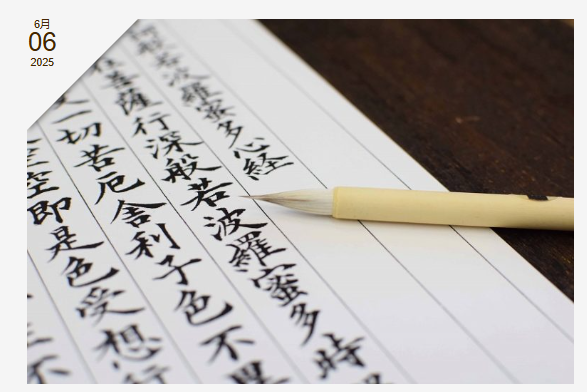 6月
06
2025
般若波羅蜜多心経
菩薩行深般若波羅蜜多時
一切苦厄舎利子色不異
空即是色受想行
不